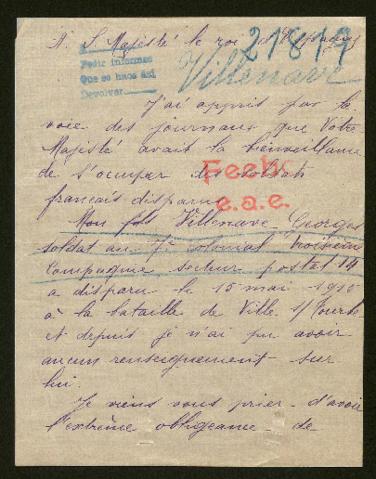 A S. Majésté le roi d'Espagne
21819
Pedir informes
Que se haga así
Devolver
Villenave
J'ai appris par la
voie des journaux que Votre
Majésté avait la bienveillance
de s'occuper de soldats
Fecho
français disparus
e.a.e.
Mon fils Villenave Georges
soldat au 7e colonial troisième
Compagnie secteur postal 14
a disparu le 15 mai 1915
à la bataille de Ville s/ Tourbe
et depuis je n'ai pu avoir
aucun renseignement sur
lui.
Je viens vous prier d'avoir
l'extrême obligeance de